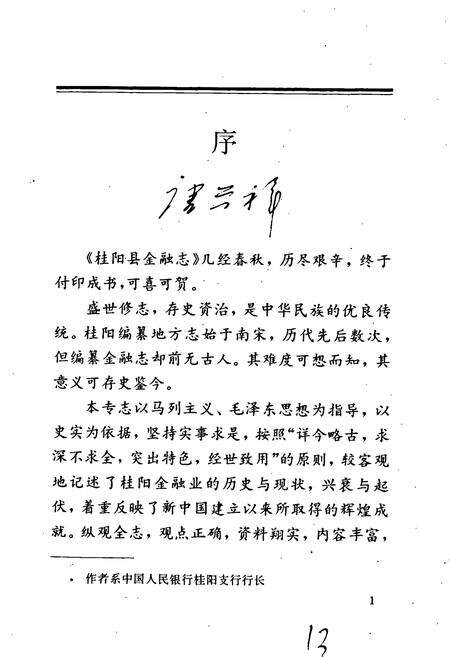 序
《桂阳县金融志》几经春秋，历尽艰辛，终于
付印成书，可喜可贺。
盛世修志，存史资治，是中华民族的优良传
统。桂阳编纂地方志始于南宋，历代先后数次，
但编纂金融志却前无古人。其难度可想而知，其
意义可存史鉴今。
本专志以马列主义、毛泽东思想为指导，以
史实为依据，坚持实事求是，按照“详今略古，求
深不求全，突出特色，经世致用”的原则，较客观
地记述了桂阳金融业的历史与现状，兴衰与起
伏，着重反映了新中国建立以来所取得的辉煌成
就。纵观全志，观点正确，资料翔实，内容丰富，
• 作者系中国人民银行桂阳支行行长
1
13